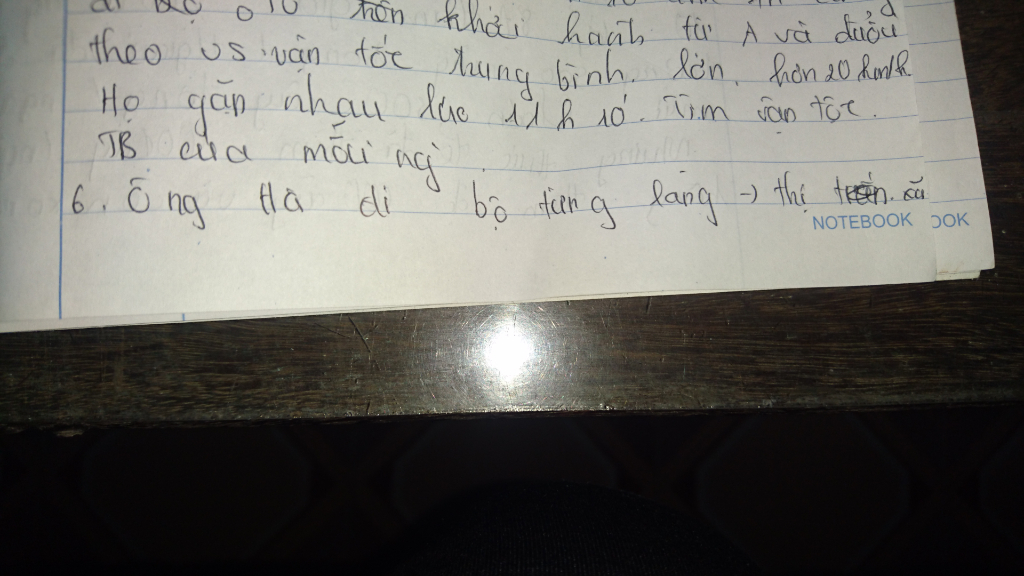 hôn khởi hanh từ A và đuổi
theo vs vận tốc trung bình. lớn. hơn 20 km/h
Họ gặp nhau lúc 11 h 10'. Tìm vận tốc.
TB của mỗi ng
6. Ông Ha đi bộ từng làng → thị xã
NOTEBOOK OOK